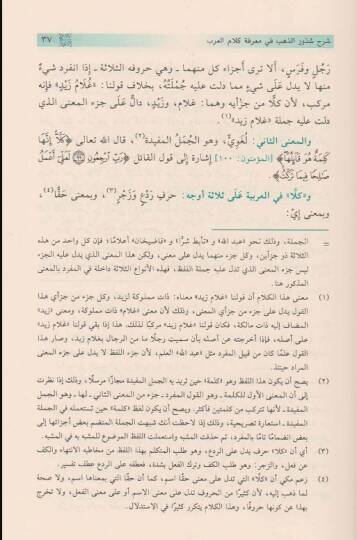 شرح شذور الذهب في معرفة كلام العرب
٣٧
رَجُلٍ وفَرَسٍ، ألا ترى أجزاء كل منهما ـ وهي حروفه الثلاثة ـ إذا انفرد شيءٌ
منها لا يدل عَلَى شيءٍ مما دلت عليه جُمْلَتُهُ، بخلاف قولنا: «غُلَامُ زَيْدٍ» فإنه
مركب، لأن كلًّا من جزأيه وهما: غلام، وزَيْدٍ، دالٌّ عَلَى جزء المعنى الذي
دلت عليه جملة «غلام زيد»(١).
والمعنى الثاني: لُغَوِيٌّ، وهو الجُمَلُ المفيدة(٢)، قال الله تعالى ﴿كَلَّا إِنَّهَا
كَلِمَةٌ هُوَ قَائِلُهَا﴾ [المؤمنون: ١٠٠] إشارة إلى قول القائل ﴿رَبِّ ارْجِعُونِ ۝ لَعَلِّي أَعْمَلُ
صَالِحًا فِيمَا تَرَكْتُ﴾.
و«كلَّا» في العربية عَلَى ثلاثة أوجه: حرفِ رَدْعٍ وَزَجْرٍ(٣)، وبمعنى حَقًّا(٤)،
وبمعنى إيْ:
= الجملة، وذلك نحو «عبد الله» و«تأبط شرًّا» و«قاضيخان» أعلامًا؛ فإن كل واحد من هذه
الثلاثة ذو جزأين، وكل جزء منهما يدل على معنى، ولكن هذا المعنى الذي يدل عليه الجزء
ليس جزء المعنى الذي تدل عليه جملة اللفظ، فهذه الأنواع الثلاثة داخلة في المفرد بالمعنى
المذكور هنا.
(١) معنى هذا الكلام أن قولنا «غلام زيد» معناه: ذات مملوكة لزيد، وكل جزء من جزأي هذا
القول يدل على جزء من أجزاء المعنى، وذلك لأن معنى «غلام» ذات مملوكة، ومعنى «زيد»
المضاف إليه ذات مالكة، فكان قولنا «غلام زيد» مركبًا لذلك، هذا إذا بقي قولنا «غلام زيد»
على أصله، فإذا أخرجته عن أصله بأن سميت رجلًا ما من الرجال بغلام زيد، وصار هذا
القول علمًا كان من قبيل المفرد مثل «عبد الله» العلم، لأن جزء اللفظ لا يدل على جزء المعنى
المراد حينئذ.
(٢) يصح أن يكون هذا اللفظ وهو «كلمة» حين تريد به الجمل المفيدة مجازًا مرسلًا، وذلك إذا نظرت
إلى أن المعنى الأول للكلمة ـ وهو القول المفرد ـ جزء من المعنى الثاني ـ لها ـ وهو الجمل
المفيدة ـ لأنها تتركب من كلمتين فأكثر، ويصح أن يكون لفظ «كلمة» حين تستعمله في الجملة
المفيدة ـ استعارة تصريحية، وذلك إذا لاحظت أنك شبهت الجملة المنضم بعض أجزائها إلى
بعض انضمامًا تامًا بالمفرد، ثم حذفت المشبه واستعملت اللفظ الموضوع للمشبه به في المشبه.
(٣) أي أن «كلا» حرف يدل على الردع، وهو طلب المتكلم بهذا اللفظ من مخاطبه الانتهاء والكف
عن فعل، والزجر: وهو طلب الكف وترك الفعل بشدة، فعطفه على الردع عطف تفسير.
(٤) زعم مكي أن «كلَّا» التي تدل على معنى حقًا اسم، كما أن حقًا التي بمعناها اسم، ولا صحة
لما ذهب إليه، لأن كثيرًا من الحروف تدل على معنى الاسم أو على معنى الفعل، ولا تخرج
بهذا عن كونها حروفًا، وهذا الكلام يتكرر كثيرًا في الاستدلال.